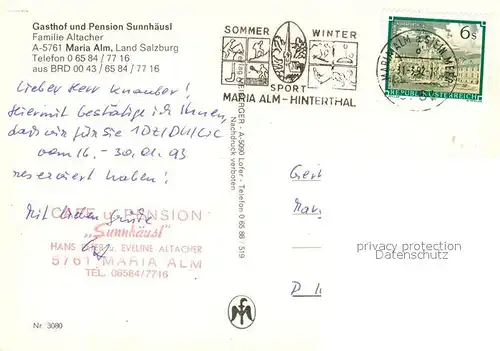 Gasthof und Pension Sunnhäusl
Familie Altacher
A-5761 Maria Alm, Land Salzburg
Telefon 0 65 84 / 77 16
aus BRD 00 43 / 65 84 / 77 16
Lieber Herr Knauber!
Hiermit bestätige ich Ihnen,
dass wir für Sie 1 DZ/DU/WC
vom 16. - 30.01.93
reserviert haben!
Mit lieben Grüße
CAFE u. PENSION
„Sunnhäusl"
HANS u. EVELINE ALTACHER
5761 MARIA ALM
TEL. 06584/7716
Nr. 3080
A-5090 Lofer - Telefon 0 65 88 / 519
Nachdruck verboten
SOMMER WINTER
SPORT
MARIA ALM - HINTERTHAL
6 S
REPUBLIK ÖSTERREICH
MARIA ALM
privacy protection
AnsichtskartenCenter